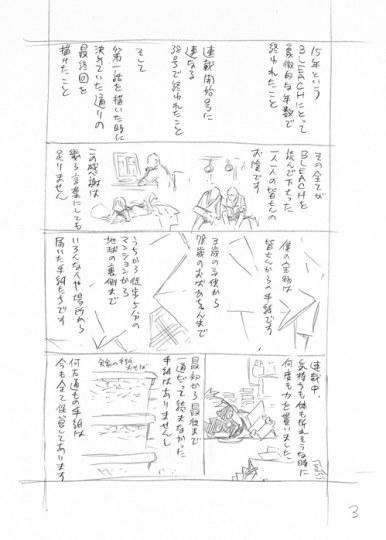 15年という
BLEACHにとって
象徴的な年数で
終われたこと
連載開始号に
連なる
38号で終われたこと
そして
第一話を描いた時に
決めていた通りの
最終回を
描けたこと
その全てが
BLEACHを
読んで下さった
一人一人の皆さんの
お陰です
この感謝は
幾ら言葉にしても
足りません
僕の宝物は
皆さんからの手紙です
3歳の子供から
78歳のおばあさんまで
うちから徒歩5分の
マンションから
地球の裏側まで
いろんな人や場所から
届いた手紙たちです
連載中、
気持ちも体も折れそうな時に
何度も力を貰いました
最初から最後まで
一通だって読まなかった
手紙はありませんし
何万通もの手紙は
今も全て保管してあります
3